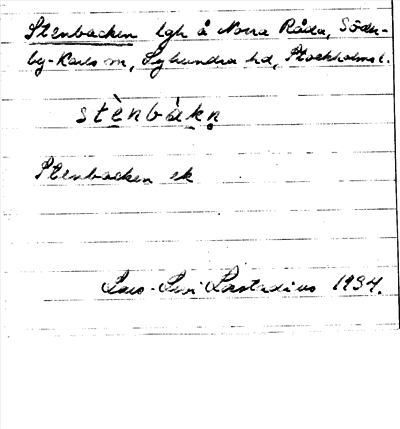 Stenbacken lgh å Norra Råda, Söder-
by-Karls sn, Lyhundra hd, Stockholms l.
stènbàkn̥
Stenbacken ek
Lars-Levi Læstadius 1934.